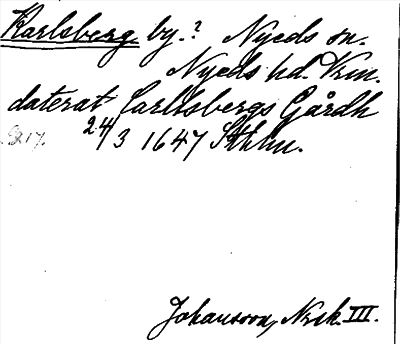 Karlsberg. by.? Nyeds sn.
Nyeds hd. Vrm.
daterat Carllsbergs Gårdh
24/3 1647 Sthlm.
Johansson, Nrsk. III.